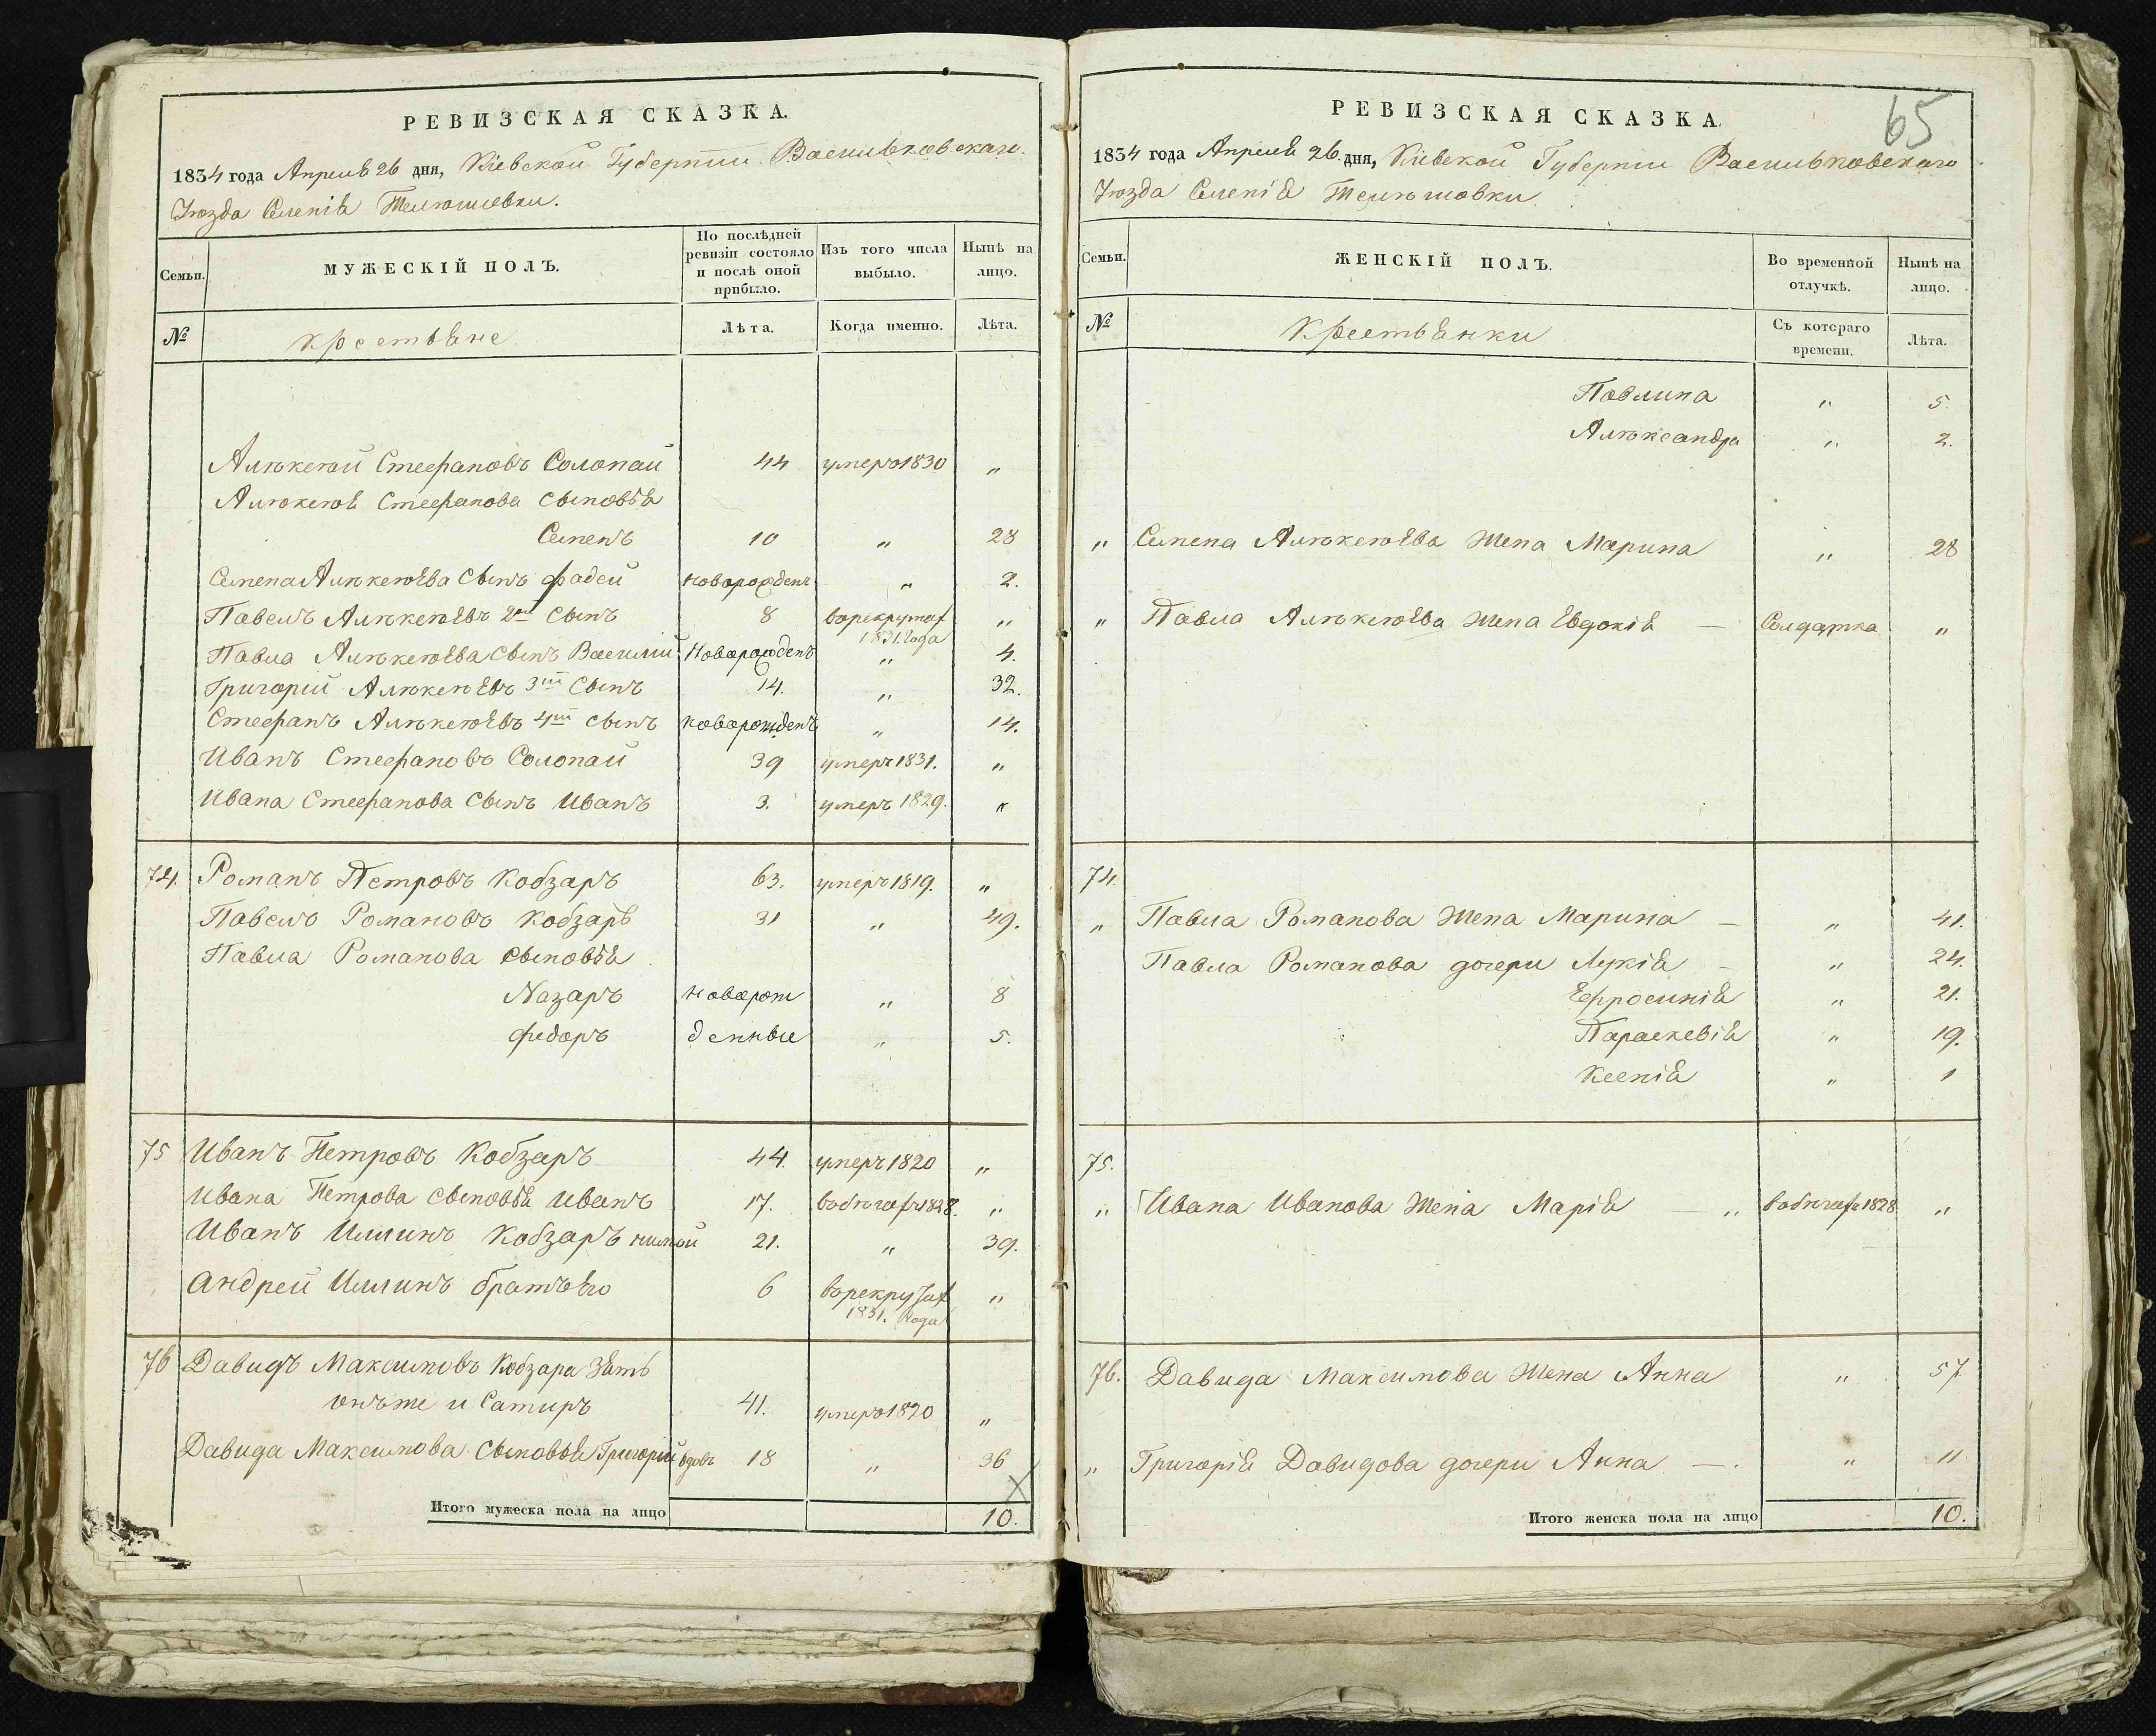 РЕВИЗСКАЯ СКАЗКА.
1834 года Апреля 26 дня, Кіевской Губерніи Васильковскаго
Уѣзда Селенія Телѣшовки.
Семьи.
МУЖЕСКІЙ ПОЛЪ.
По послѣдней ревизіи состояло и послѣ оной прибыло.
Изъ того числа выбыло.
Нынѣ на лицо.
№
крестьяне
Лѣта.
Когда именно.
Лѣта.
Алѣксѣй Стефановъ Солопай 44 умеръ 1830 „
Алѣксѣя Стефанова сыновья
Семенъ 10 „ 28
Семена Алѣксѣева сынъ Фадей новорожденъ „ 2.
Павелъ Алѣксѣевъ 2й сынъ 8 въ рекрутах 1831 года „
Павла Алѣксѣева сынъ Василій Новорожденъ „ 4.
Григорій Алѣксѣевъ 3ій сынъ 14. „ 32.
Стефанъ Алѣксѣевъ 4ій сынъ новорожденъ „ 14.
Иванъ Стефановъ Солопай 39 умеръ 1831. „
Ивана Стефанова сынъ Иванъ 3. умеръ 1829. „
74. Романъ Петровъ Кобзаръ 63. умеръ 1819. „
Павелъ Романовъ Кобзарь 31 „ 49.
Павла Романова сыновья
Назаръ новорож „ 8
Федоръ денные „ 5.
75 Иванъ Петровъ Кобзаръ 44. умеръ 1820 „
Ивана Петрова сыновья Иванъ 17. въ бѣгах 1828. „
Иванъ Иллинъ Кобзаръ нимой 21. „ 39.
Андрей Иллинъ братъ его 6 въ рекрутах 1831. года „
76 Давидъ Максимовъ Кобзара Зять
онъже и Сатиръ 41. умеръ 1820 „
Давида Максимова сыновья Григорій вдовъ 18 „ 36
Итого мужеска пола на лицо 10.
65
РЕВИЗСКАЯ СКАЗКА.
1834 года Апреля 26 дня, Кіевской Губерніи Васильковскаго
Уѣзда Селенія Телѣшовки.
Семьи.
ЖЕНСКІЙ ПОЛЪ.
Во временной отлучкѣ.
Нынѣ на лицо.
№
Крестьянки
Съ котораго времени.
Лѣта.
Павлина „ 5.
Алѣксандра „ 2.
„ Семена Алѣксѣева жена Марина „ 28
„ Павла Алѣксѣева жена Евдокія — Солдатка „
74.
„ Павла Романова жена Марина — „ 41.
Павла Романова дочери Лукія — „ 24.
Ефросинія „ 21.
Параскевія „ 19.
Ксенія „ 1
75.
„ Ивана Иванова жена Марія — „ въ бѣгах 1828 „
76. Давида Максимова жена Анна „ 57
„ Григорія Давидова дочери Анна — „ 11
Итого женска пола на лицо 10.